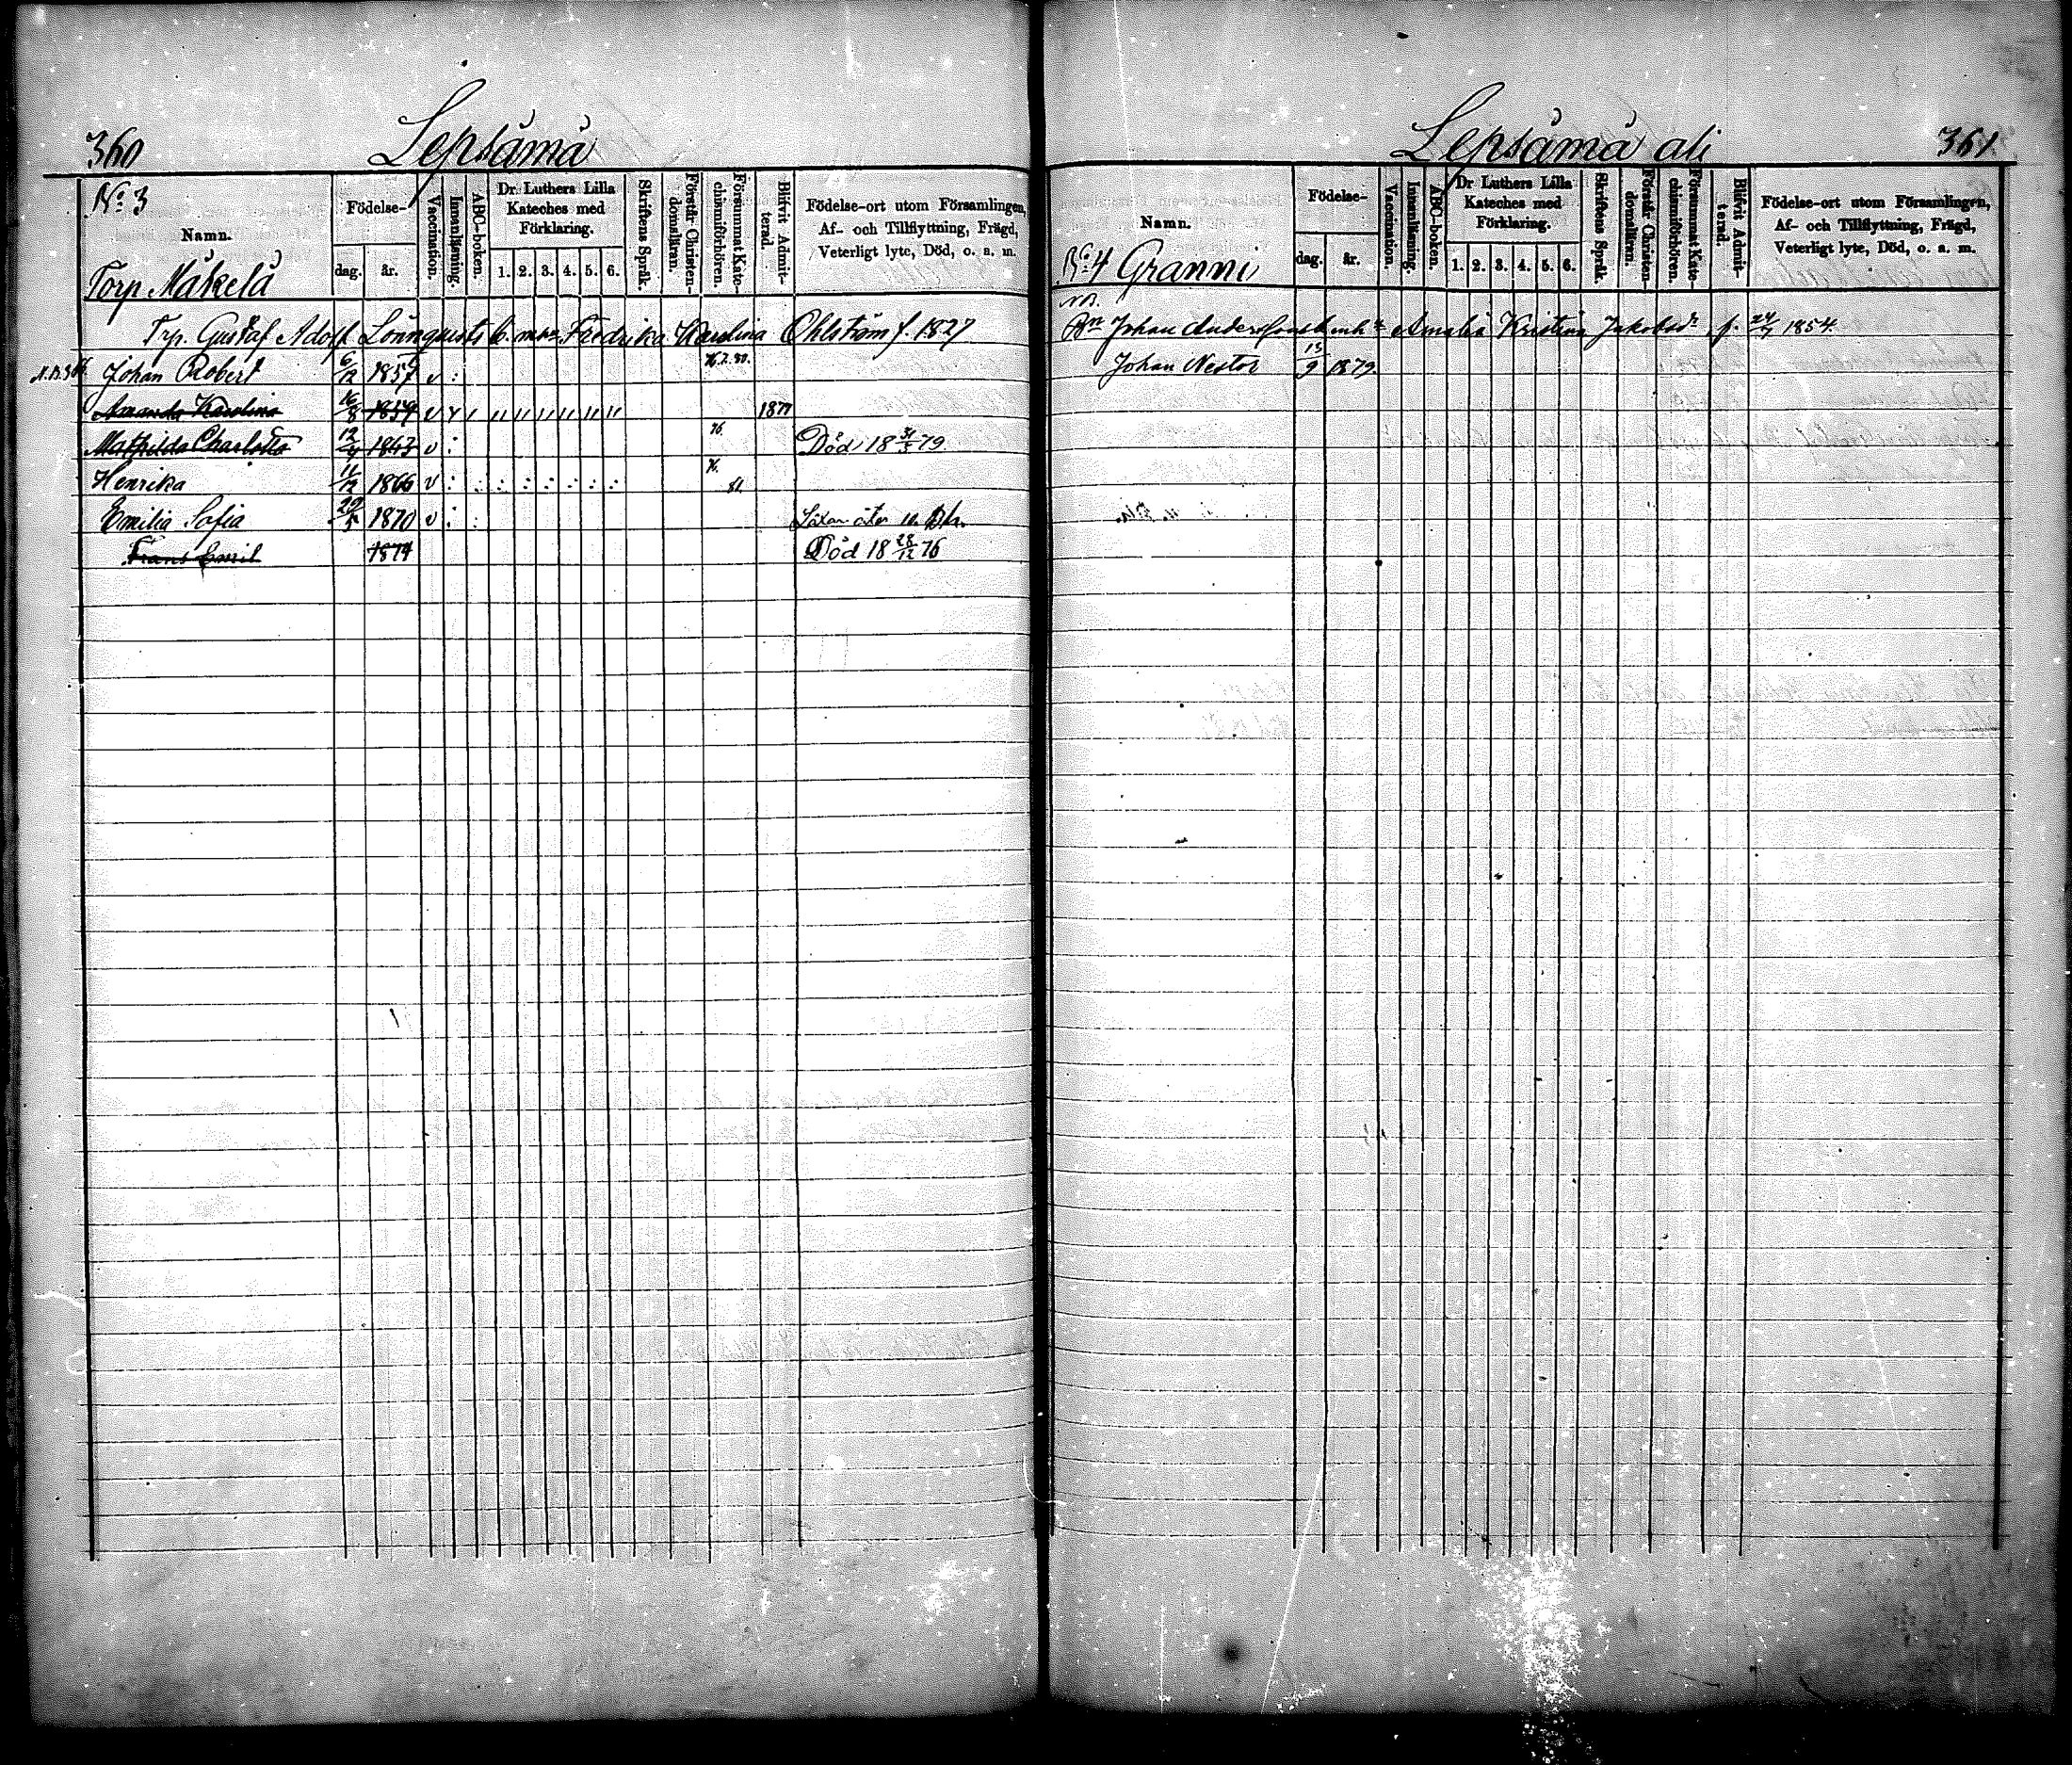 360
Lepsämä
No 3
Namn.
Torp Mäkelä
Födelse-
dag. år.
Vaccination.
Innanläsning.
ABC-boken.
Dr. Luthers Lilla
Kateches med
Förklaring.
1. 2. 3. 4. 5. 6.
Skriftens Språk.
Förstår Christen-
domsläran.
Försummat Kate-
chismiförhören.
Blifvit Admit-
terad.
Födelse-ort utom Församlingen,
Af- och Tillflyttning, Frägd,
Veterligt lyte, Död, o. a. m.
Trp. Gustaf Adolf Lönnquists Fredrika Karolina Ohlström f. 1827
Johan Robert 6/12 1857 v :
Amanda Karolina 16/8 1859 v 1877
Mathilda Charlotta 12/4 1863 v : 76. Död 18 31/5 79.
Henrika 11/12 1866 v : 76. 81.
Emilia Sofia 29/5 1870 v :
Frans Emil 1874 Död 18 28/12 76
Lepsämä ali
361.
Namn.
No 4 Granni
Födelse-
dag. år.
Vaccination.
Innanläsning.
ABC-boken.
Dr Luthers Lilla
Kateches med
Förklaring.
1. 2. 3. 4. 5. 6.
Skriftens Språk.
Förstår Christen-
domsläran.
Försummat Kate-
chismiförhören.
Blifvit Admit-
terad.
Födelse-ort utom Församlingen,
Af- och Tillflyttning, Frägd,
Veterligt lyte, Död, o. a. m.
Bn Johan Andersson Amalia Kristina Jakobsdr f. 24/7 1854.
Johan Nestor 13/9 1879.